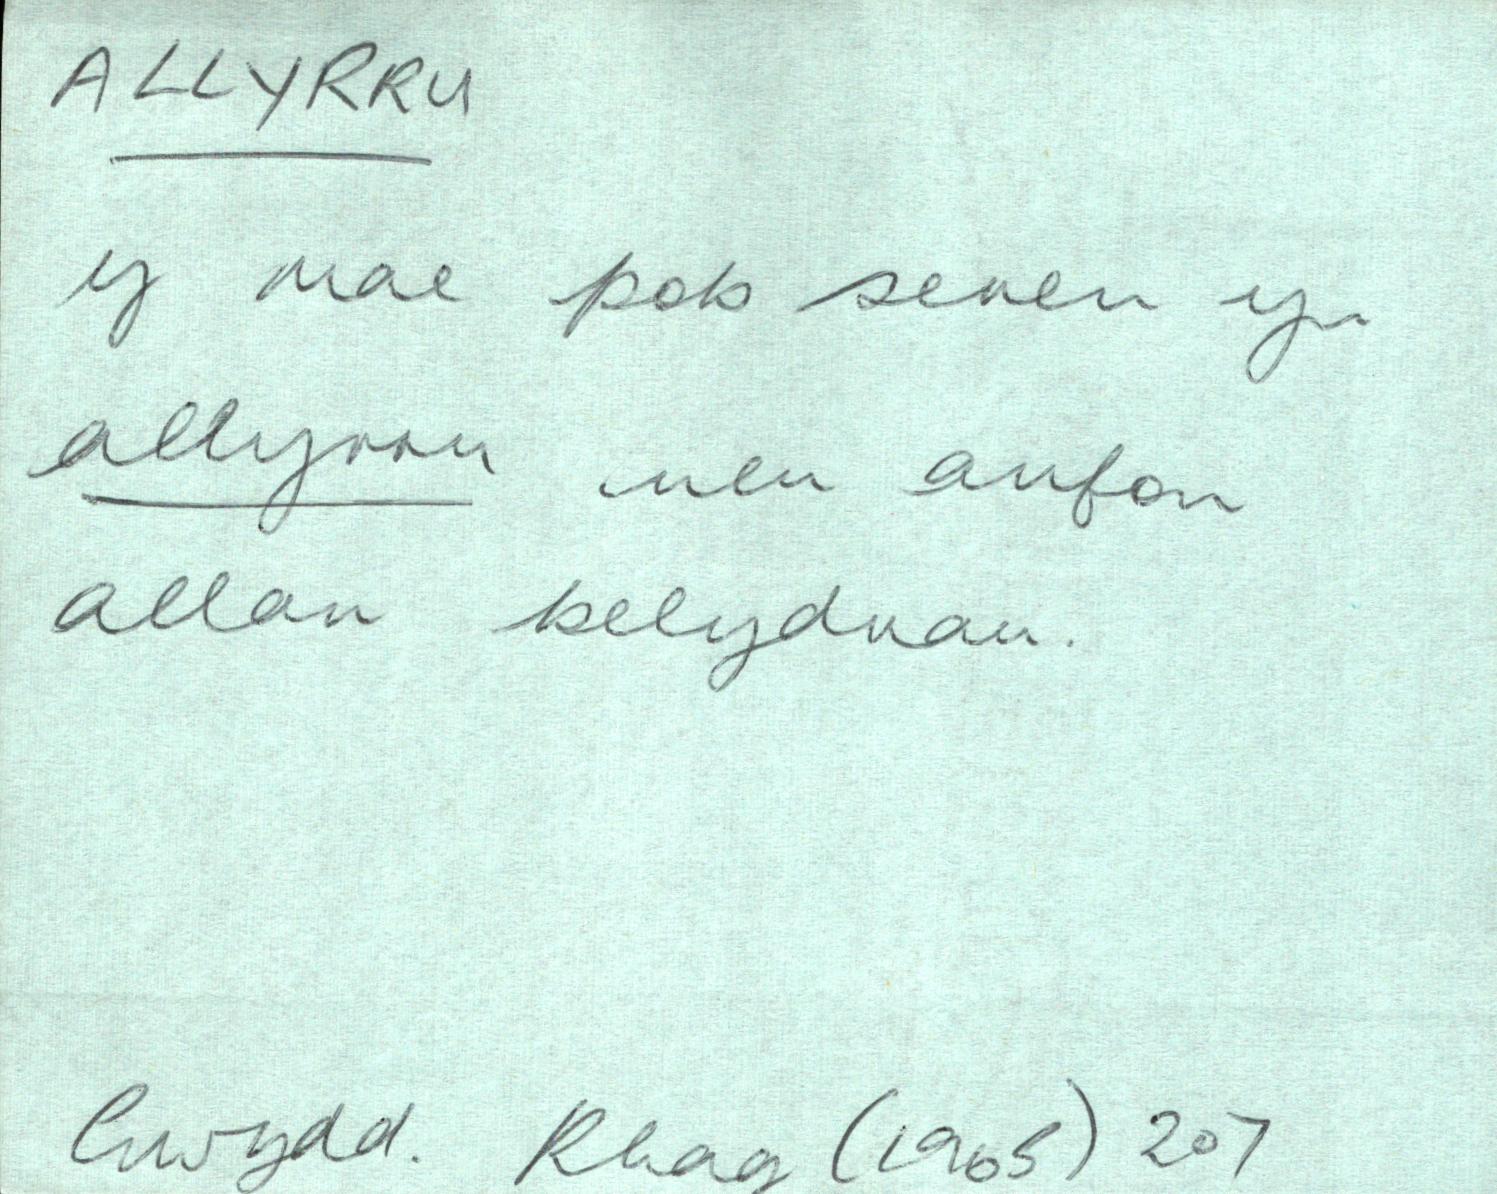 ALLYRRU
y mae pob seren yn
allyrru neu anfon
allan belydrau.
Gwydd. Rhag (1965) 207